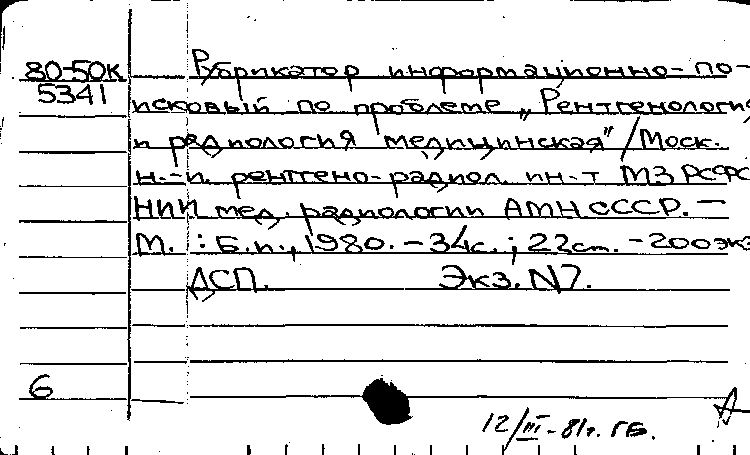 80-50К
5341
Рубрикатор информационно-по-
исковый по проблеме „Рентгенология
и радиология медицинская" / Моск.
н.-и. рентгено-радиол. ин-т МЗ РСФС
НИИ мед. радиологии АМН СССР. —
М. : Б.и., 1980. - 34с. ; 22см. - 200экз
ДСП. Экз. N7.
6
12/III-81г. ГБ.